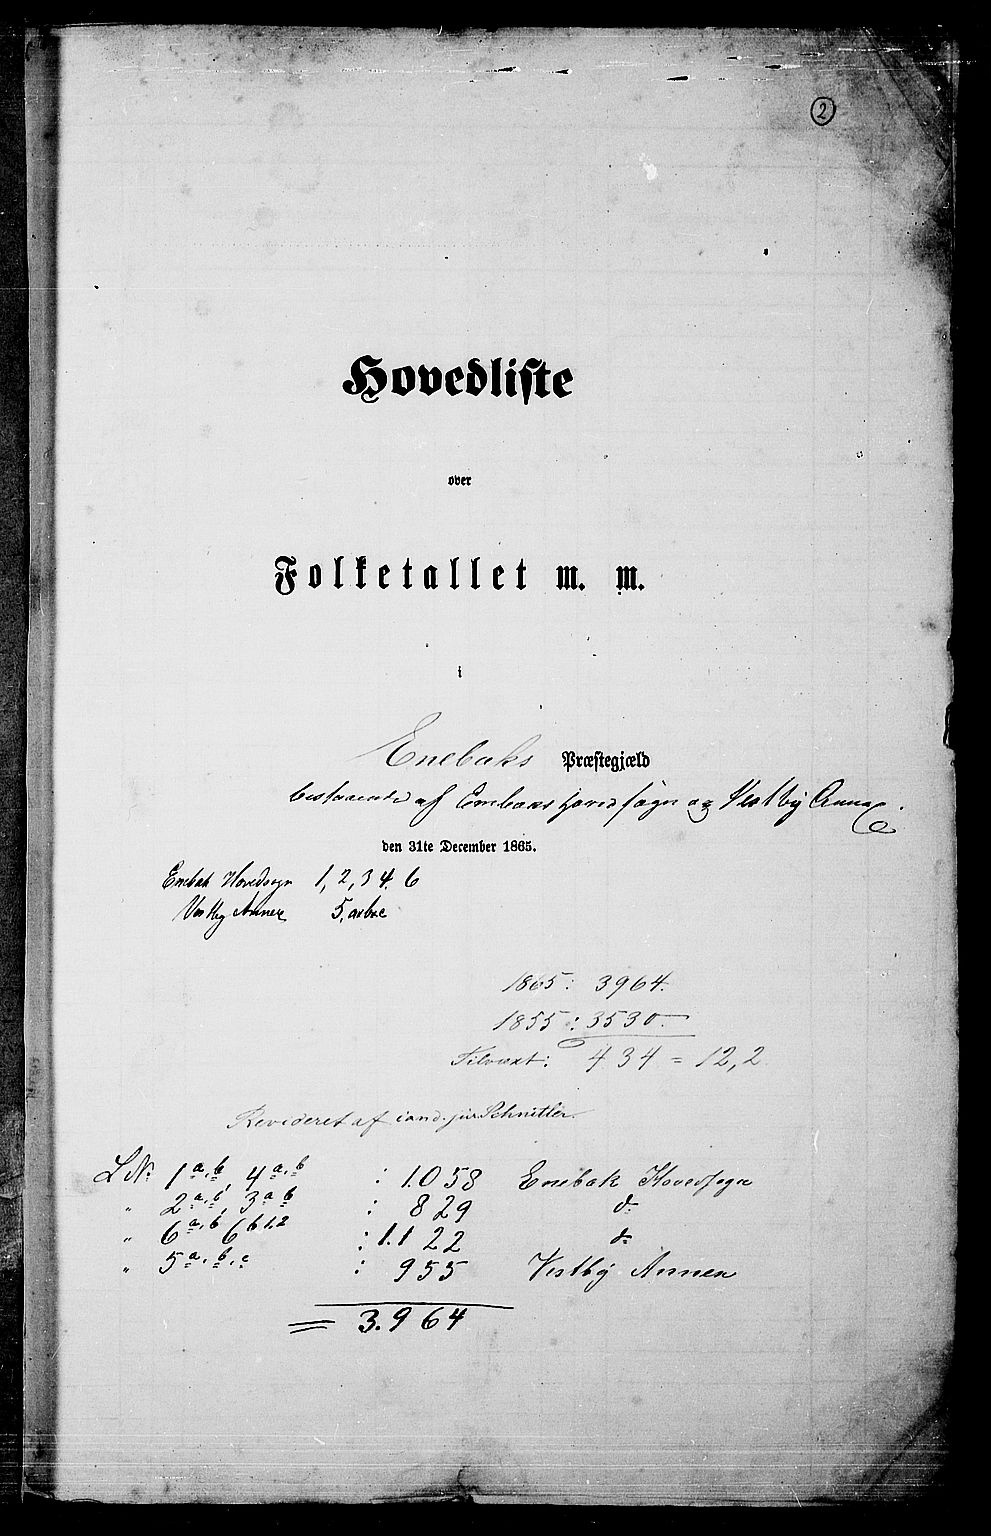 2
Hovedliste
over
Folketallet m. m.
i
Enebaks Præstegjæld
bestaaende af Enebaks Hovedsogn og Vestby Annex.
den 31te December 1865.
Enebak Hovedsogn 1, 2, 3 4. 6
Vestby Annex 5,
1865: 3964.
1855: 3530.
Tilvæxt: 434 = 12,2
Revideret af cand. jur Schnitler.
L No 1 a, b, 4 a, b : 1.058 Enebak Hovedsogn
" 2 a, b, 3 a b : 829 do
" 6 a, b 6 b 1.2 : 1.122 do
" 5 a, b, c : 955 Vestby Annex
= 3.964